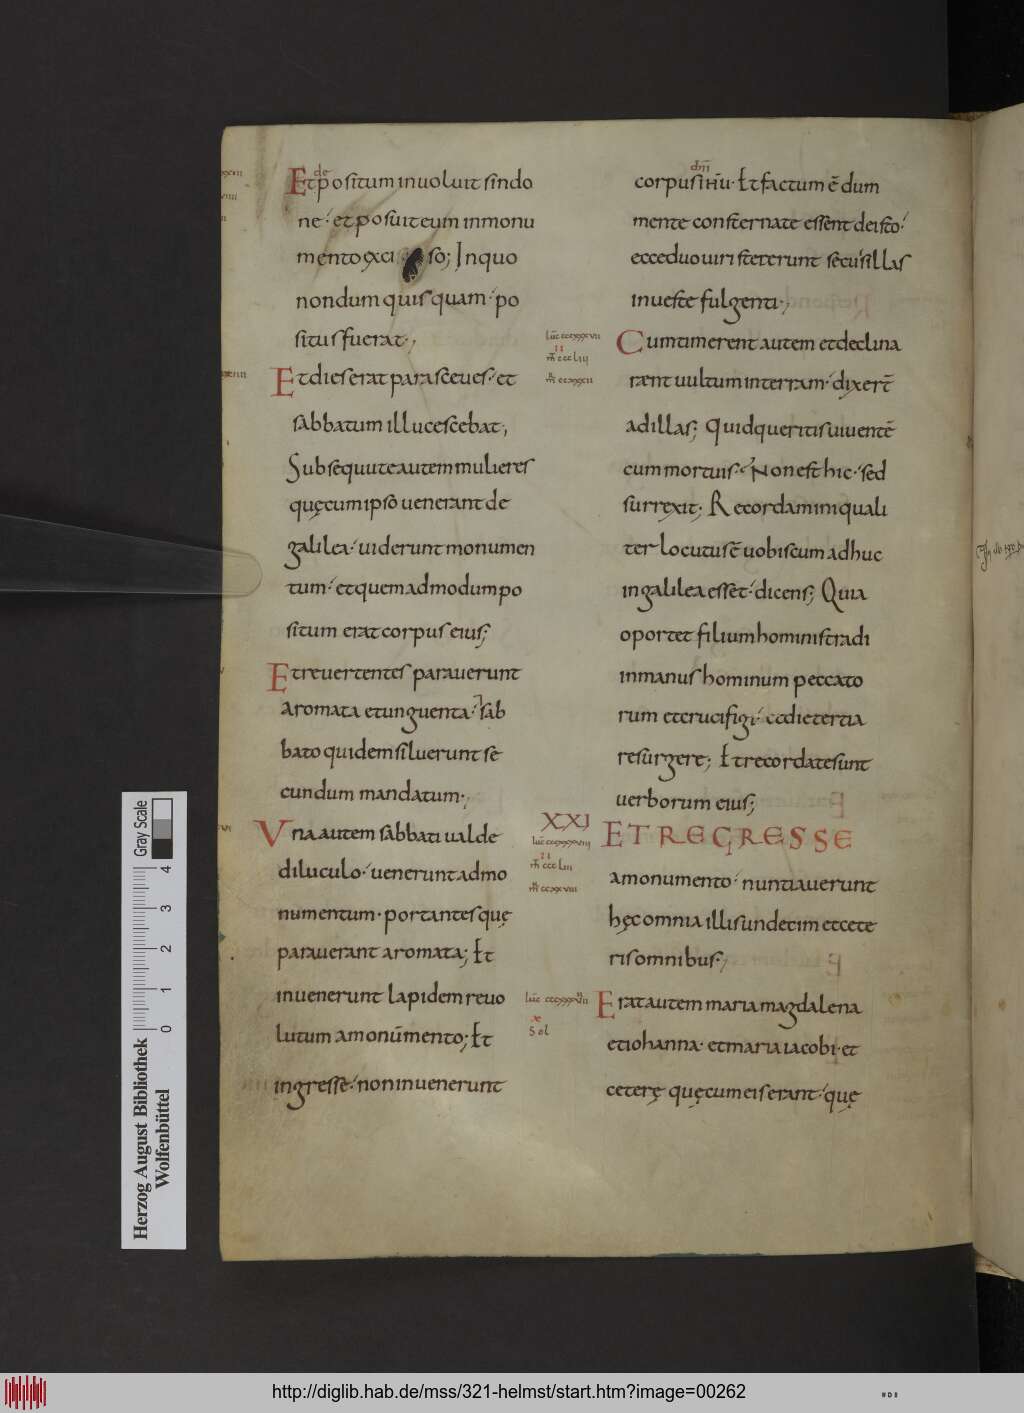 Et depositum inuoluit sindo
ne· et posuit eum in monu
mento exci so; In quo
nondum quisquam· po
situs fuerat·,
Et dies erat parasceues· et
sabbatum illucescebat·,
Subsequute autem mulieres
quę cum ipso uenerant de
galilea· uiderunt monumen
tum· et quem admodum po
situm erat corpus eius;
Et reuertentes parauerunt
aromata et unguenta· sab
bato quidem siluerunt se
cundum mandatum·,
Una autem sabbati ualde
diluculo· uenerunt ad mo
numentum· portantes quę
parauerant aromata; Et
inuenerunt lapidem reuo
lutum a monumento; Et
ingresse· non inuenerunt
dni
corpus ihu· Et factum ē dum
mente consternate essent de isto·
ecce duo uiri steterunt secus illas
in ueste fulgenti·,
luc cccxxxvii
m cccliii
Cum timerent autem et declina
rænt uultum in terram· dixert̄
ad illas; Quid queritis uiuentē
cum mortuis· Non est hic· sed
surrexit; Recordamini quali
ter locutus ē uobis cum adhuc
in galilea esset· dicens; Quia
oportet filium hominis tradi
in manus hominum peccato
rum et crucifigi· et die tertia
resurgere; Et recordate sunt
uerborum eius;
XXI
ET REGRESSE
a monumento· nuntiauerunt
hęc omnia illis undecim et cete
ris omnibus·,
Erat autem maria magdalena
et iohanna· et maria iacobi· et
ceterę quę cum eis erant· quę
sol
Gray Scale
4
3
2
1
0
Herzog August Bibliothek
Wolfenbüttel
http://diglib.hab.de/mss/321-helmst/start.htm?image=00262